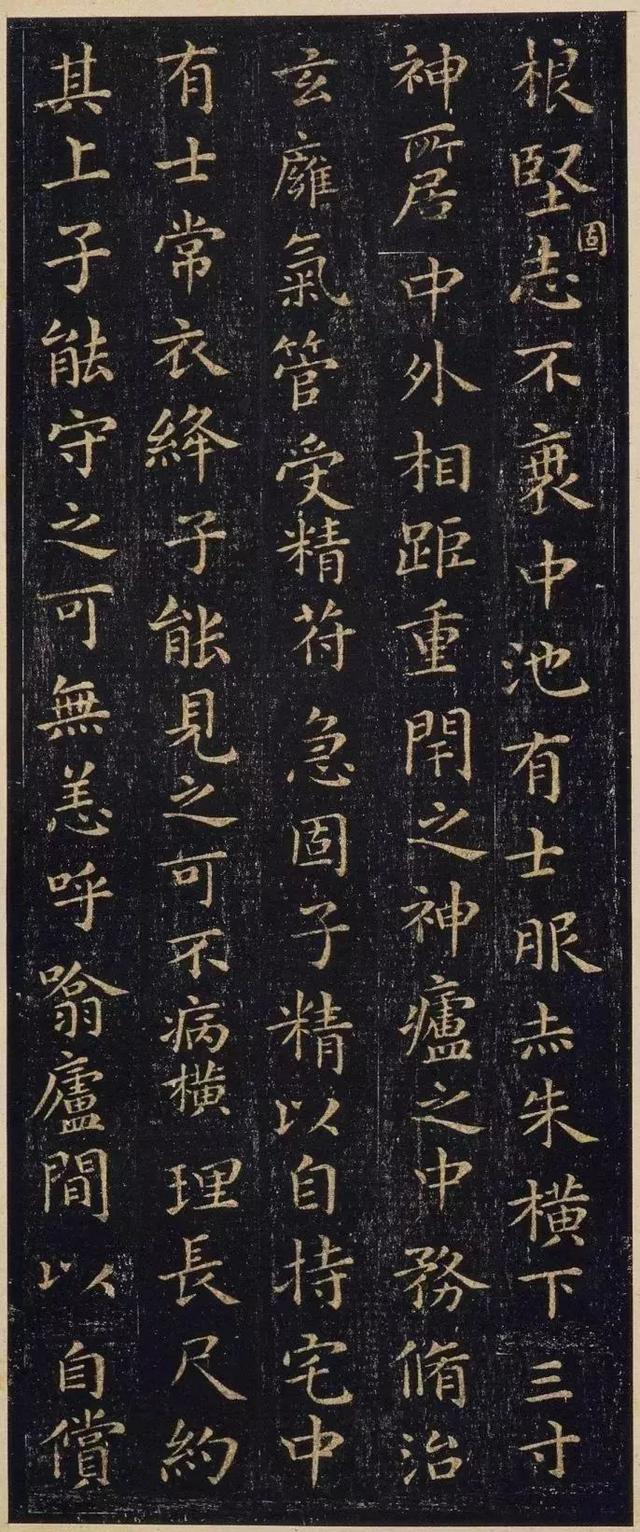 根堅固志不衰中池有士服赤朱橫下三寸
神所居中外相距重閇之神廬之中務脩治
玄廱氣管受精符急固子精以自持宅中
有士常衣絳子能見之可不病橫理長尺約
其上子能守之可無恙呼噏廬間以自償